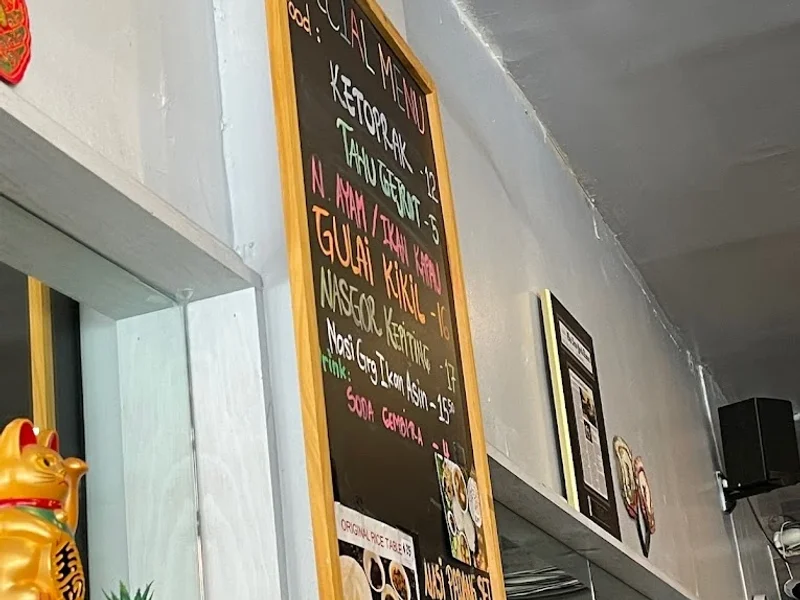 CIAL MENU
ood:
KETOPRAK -12
TAHU GEJROT -5
N. AYAM / IKAN KAPAU
GULAI KIKIL -16
NASGOR KEPITING -17
Nasi Grg Ikan Asin -15⁵⁰
rink:
SODA GEMBIRA -
ORIGINAL RICE TABLE
NASI PADANG SET